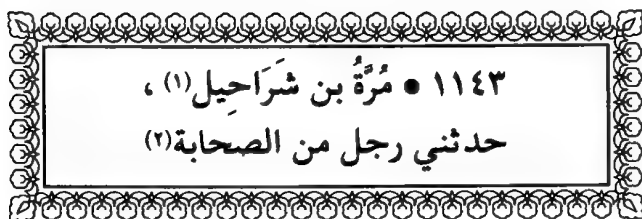 ١١٤٣ • مُرَّةُ بن شَرَاحِيل(١) ،
حدثني رجل من الصحابة(٢)